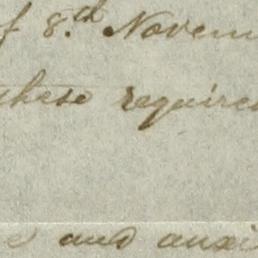 f 8.th Novem
these require
and anxi